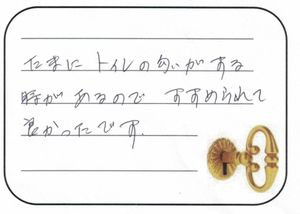 たまに トイレの匂いがする
時が あるので すすめられて
良かったです.